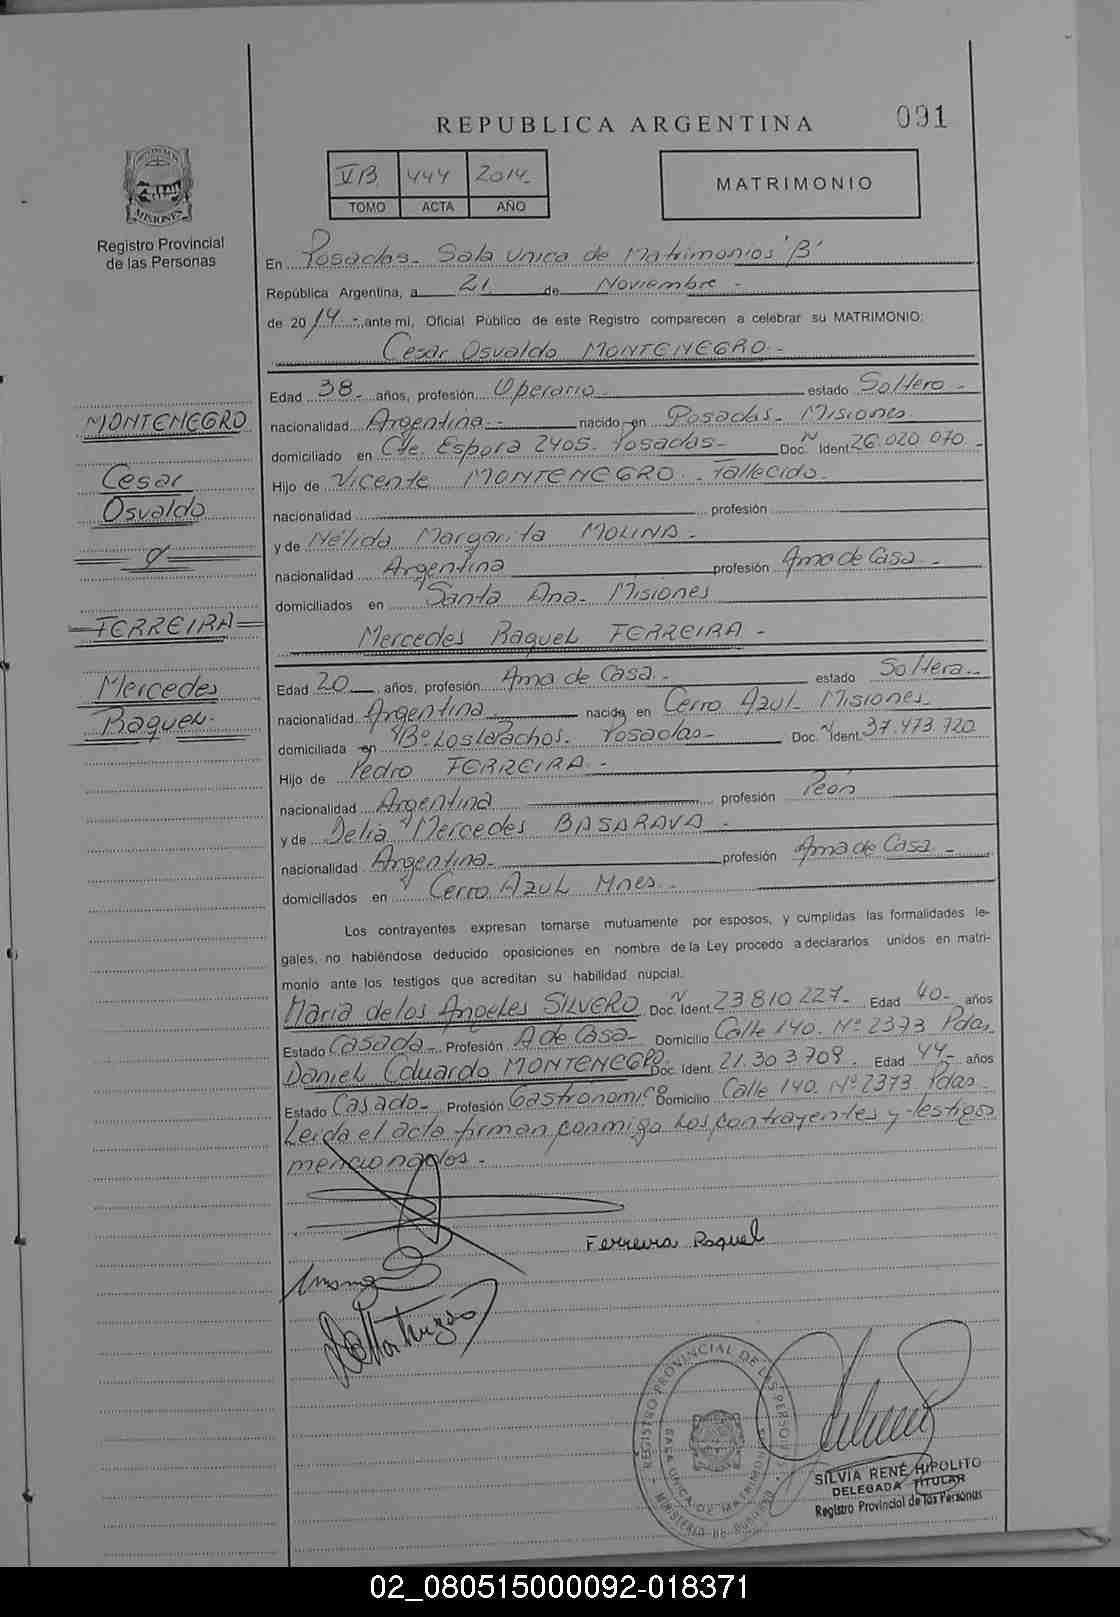 REPUBLICA ARGENTINA
091
VB 444 2014-
TOMO ACTA AÑO
MATRIMONIO
PROVINCIA DE
MISIONES
Registro Provincial
de las Personas
En Posadas- Sala Unica de Matrimonios 'B'
República Argentina, a 21 de Noviembre -
de 2014 - ante mi, Oficial Público de este Registro comparecen a celebrar su MATRIMONIO:
Cesar Osvaldo MONTENEGRO-
Edad 38- años, profesión Operario estado Soltero-
nacionalidad Argentina- nacido en Posadas- Misiones
domiciliado en Cte. Espora 2405. Posadas- Doc. Nº Ident. 26.020.070-
Hijo de Vicente MONTENEGRO. Fallecido.
nacionalidad profesión
y de Nélida Margarita MOLINA-
nacionalidad Argentina profesión Ama de Casa-
domiciliados en Santa Ana- Misiones
Mercedes Raquel FERREIRA-
Edad 20 años, profesión Ama de Casa- estado Soltera-
nacionalidad Argentina- nacida en Cerro Azul- Misiones-
domiciliada en Bº Los Lapachos. Posadas- Doc. Nº Ident. 37.473.720
Hijo de Pedro FERREIRA-
nacionalidad Argentina profesión Peón
y de Delia Mercedes BASARAVA-
nacionalidad Argentina- profesión Ama de Casa-
domiciliados en Cerro Azul Mnes-
Los contrayentes expresan tomarse mutuamente por esposos, y cumplidas las formalidades le-
gales, no habiéndose deducido oposiciones en nombre de la Ley procedo a declararlos unidos en matri-
monio ante los testigos que acreditan su habilidad nupcial.
Maria de los Angeles SILVERO Doc. Nº Ident. 23810227- Edad 40- años
Estado Casada- Profesión A de Casa- Domicilio Calle 140. Nº 2373 Pdas.
Daniel Eduardo MONTENEGRO Doc. Ident. 21.303.709. Edad 44- años
Estado Casado- Profesión Gastronomico Domicilio Calle 140. Nº 2373 Pdas-
Leida el acta firman conmigo los contrayentes y testigos
mencionados-
MONTENEGRO
Cesar
Osvaldo
FERREIRA
Mercedes
Raquel-
Ferreira Raquel
REGISTRO PROVINCIAL DE LAS PERSONAS
SALA UNICA DE MATRIMONIOS
MINISTERIO DE GOBIERNO
SILVIA RENÉ HIPOLITO
DELEGADA TITULAR
Registro Provincial de las Personas
02_080515000092-018371